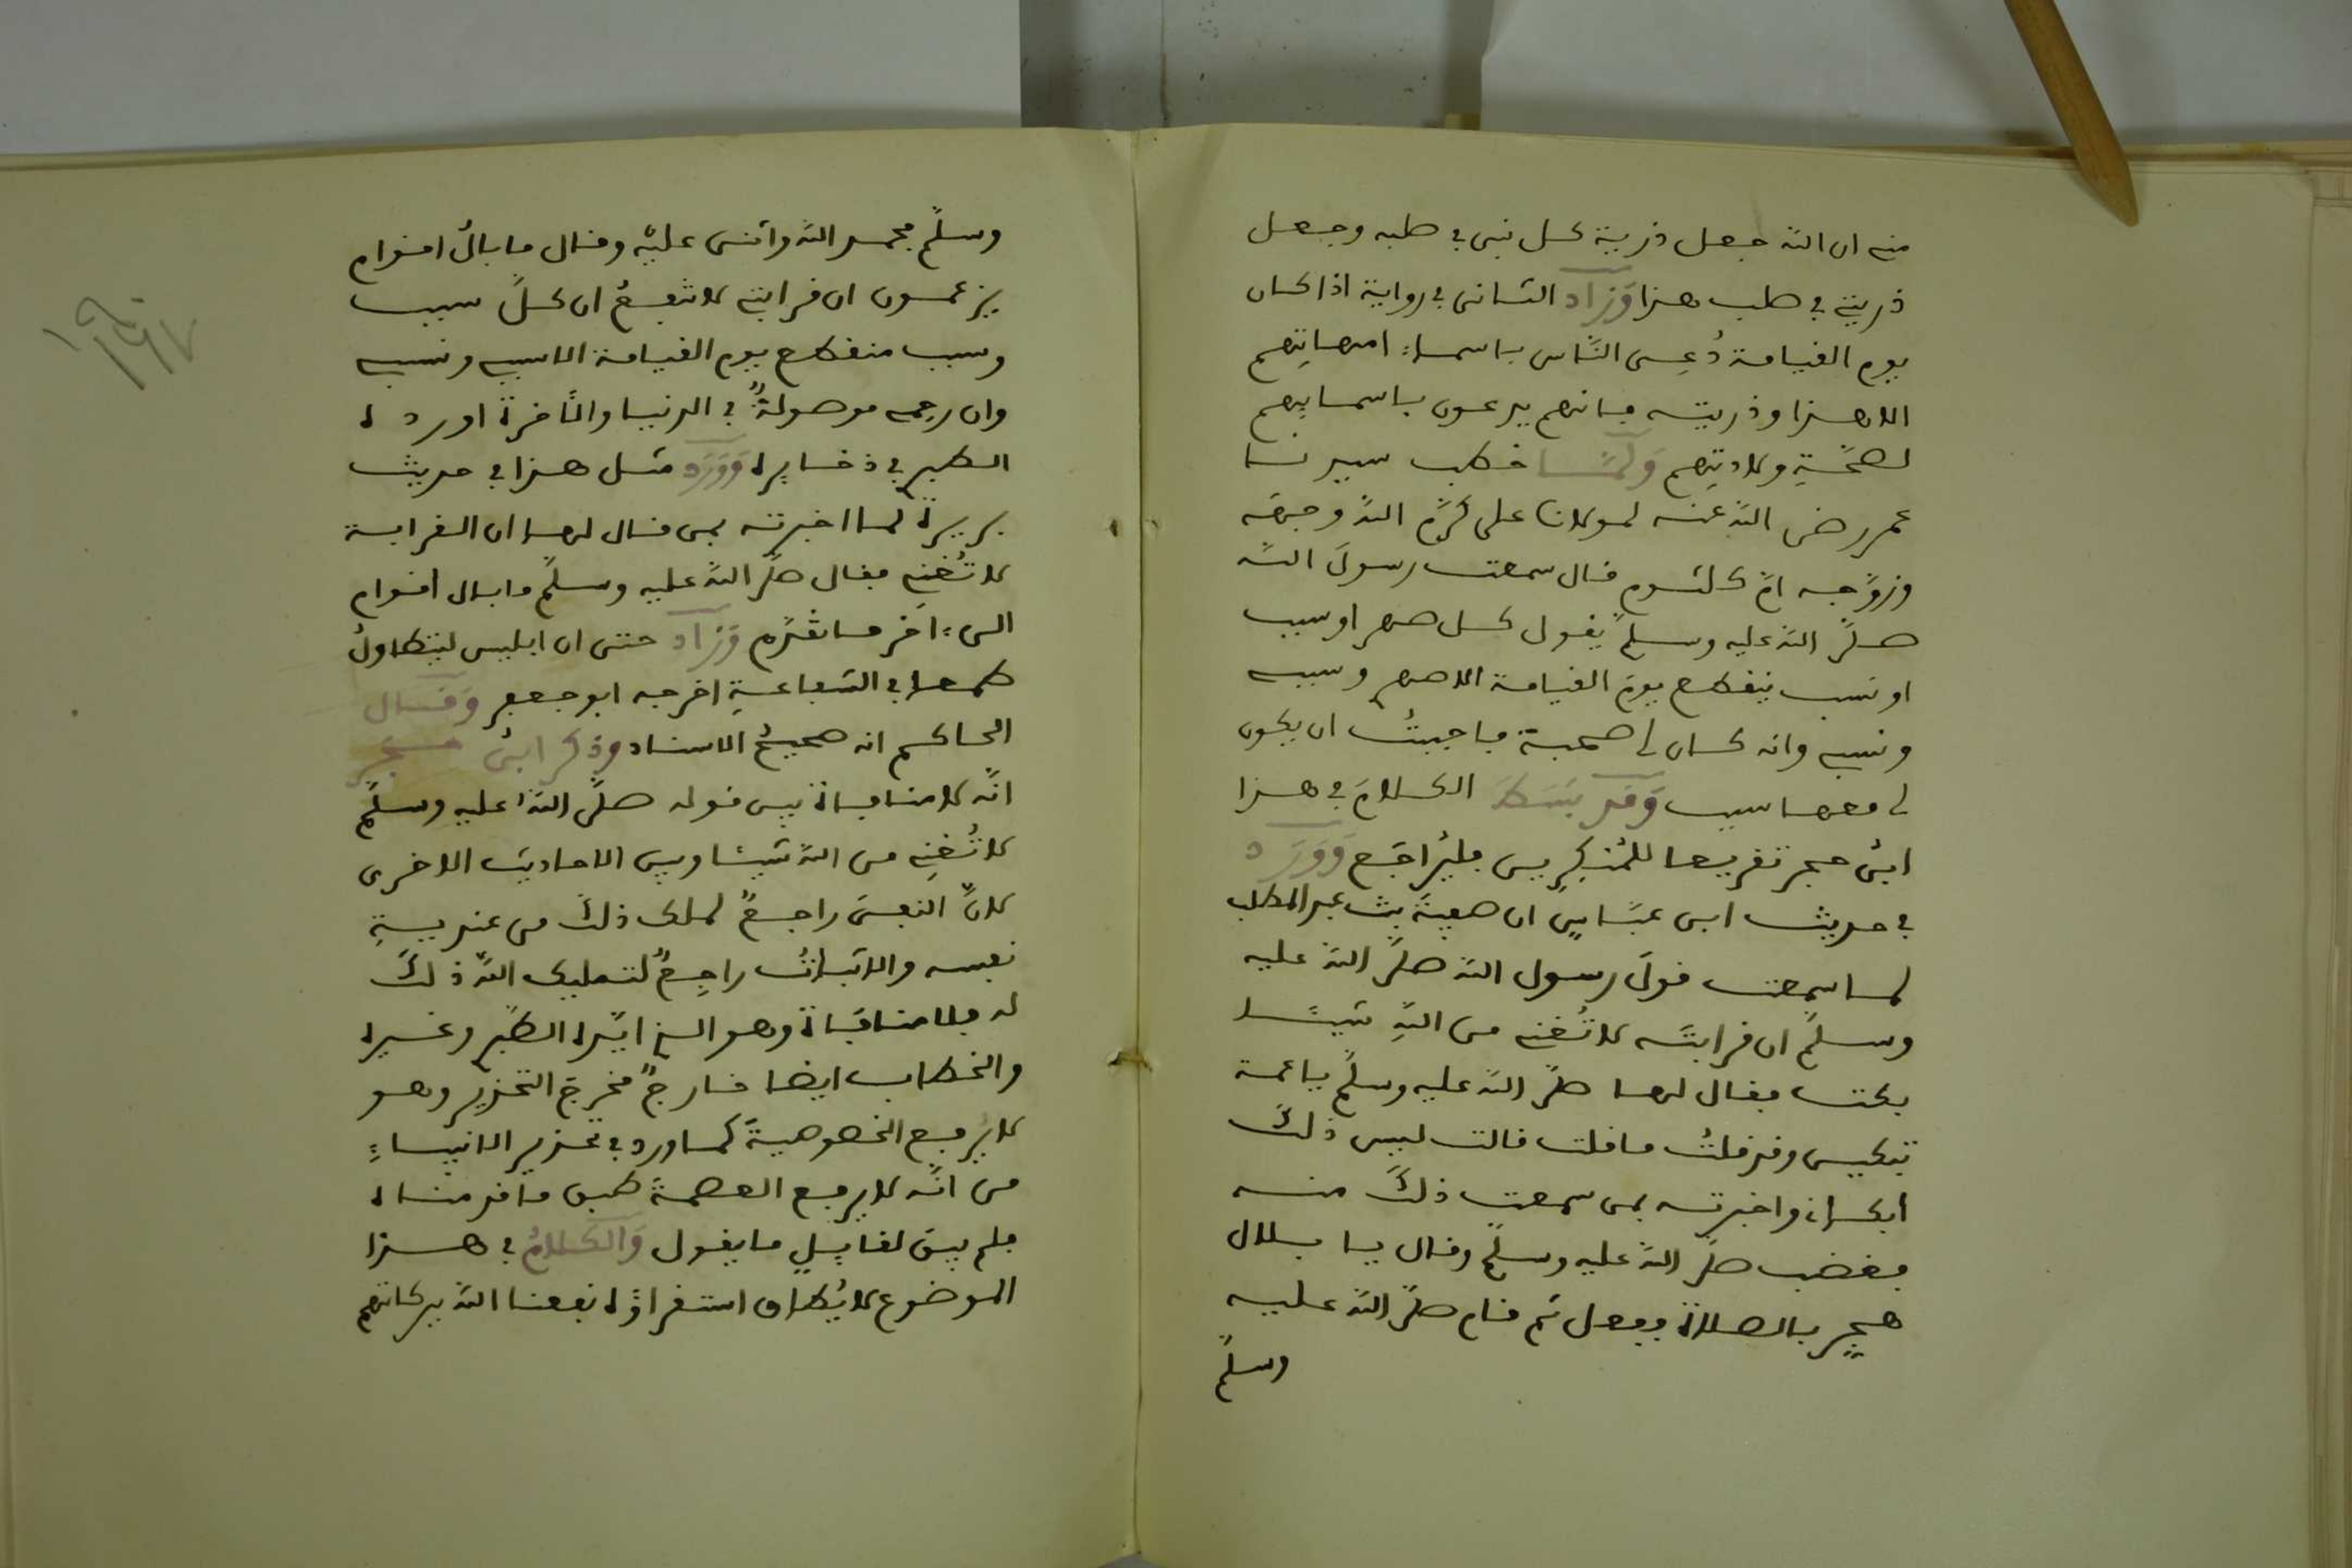 منه ان الله جعل ذرية كل نبي في صلبه وجعل
ذريتي في صلب هذا وَزَادَ الثاني في رواية اذا كان
يوم القيامة دُعِى النَّاس باسماء امهاتِهم
الا هذا وذريته فانهم يدعون باسمايِهم
لصحَّةِ ولادتِهم وَلَمَّا خطب سيدنا
عمر رضى الله عنه لمولانا على كرَّم اللهُ وجهَه
وزوَّجه امَّ كلثوم قال سمعت رسولَ الله
صلَّى الله عليه وسلم يقول كل صهر او سبب
او نسب ينقطع يومَ القيامة الا صهر وسببى
ونسبى وانه كان لى صحبة فاحببتُ ان يكون
لى معها سبب وَقَد بَسَطَ الكلامَ في هذا
ابنُ حجر تقريعا للمُنكِرِين فليُراجَع وَوَرَدَ
في حديث ابن عبَّاسٍ ان صفيةَ بنت عبد المطلب
لما سمعت قولَ رسول الله صلَّى الله عليه
وسلَّم ان قرابتَه لا تُغنِى من اللهِ شيئًا
بكت فقال لها صلَّى الله عليه وسلَّم يا عمة
تبكين وقد قلتُ ما قلت قالت ليس ذلك
ابكانى واخبرته بمن سمعت ذلك منه
فغضب صلَّى الله عليه وسلَّم وقال يا بلال
هجِّر بالصلاة ففعل ثم قام صلَّى الله عليه
وسلَّم
وسلَّم فحمد الله واثنى عليه وقال ما بالُ اقوام
يزعمون ان قرابتى لا تنفعُ ان كلَّ سبب
ونسب منقطع يوم القيامة الا سببى ونسبى
وان رحمى موصولةٌ في الدنيا والآخرة اورده
الطبرى في ذخايره وَوَرَدَ مثل هذا في حديث
بريرة لما اخبرته بمن قال لها ان القرابة
لا تُغنِى فقال صلَّى الله عليه وسلَّم ما بال اقوام
الى ءاخر ما تقدَّم وَزَادَ حتى ان ابليس ليتطاولُ
طمعا في الشفاعةِ اخرجه ابو جعفر وَقَال
الحاكم انه صحيحُ الاسناد وذكر ابنُ حجر
انَّه لا منافاة بين قوله صلَّى الله عليه وسلَّم
لا تُغنِى من الله شيئا وبين الاحاديث الاخرى
لانَّ النفىَ راجعٌ لملك ذلك من عنديةِ
نفسه والاثباتُ راجِعٌ لتمليك اللهِ ذلك
له فلا منافاة وهو الذى ايَّده الطبرى وغيره
والخطاب ايضا خارجٌ مخرجَ التحذير وهو
لا يُرفع الخصوصيةَ كما ورد في تحذير الانبياءِ
من انَّه لا يرفع العصمةَ طبق ما قدمناه
فلم يبق لقايلٍ ما يقول وَالكَلامُ في هذا
الموضوع لا يُطاق استقراؤه نفعنا الله ببركاتهم